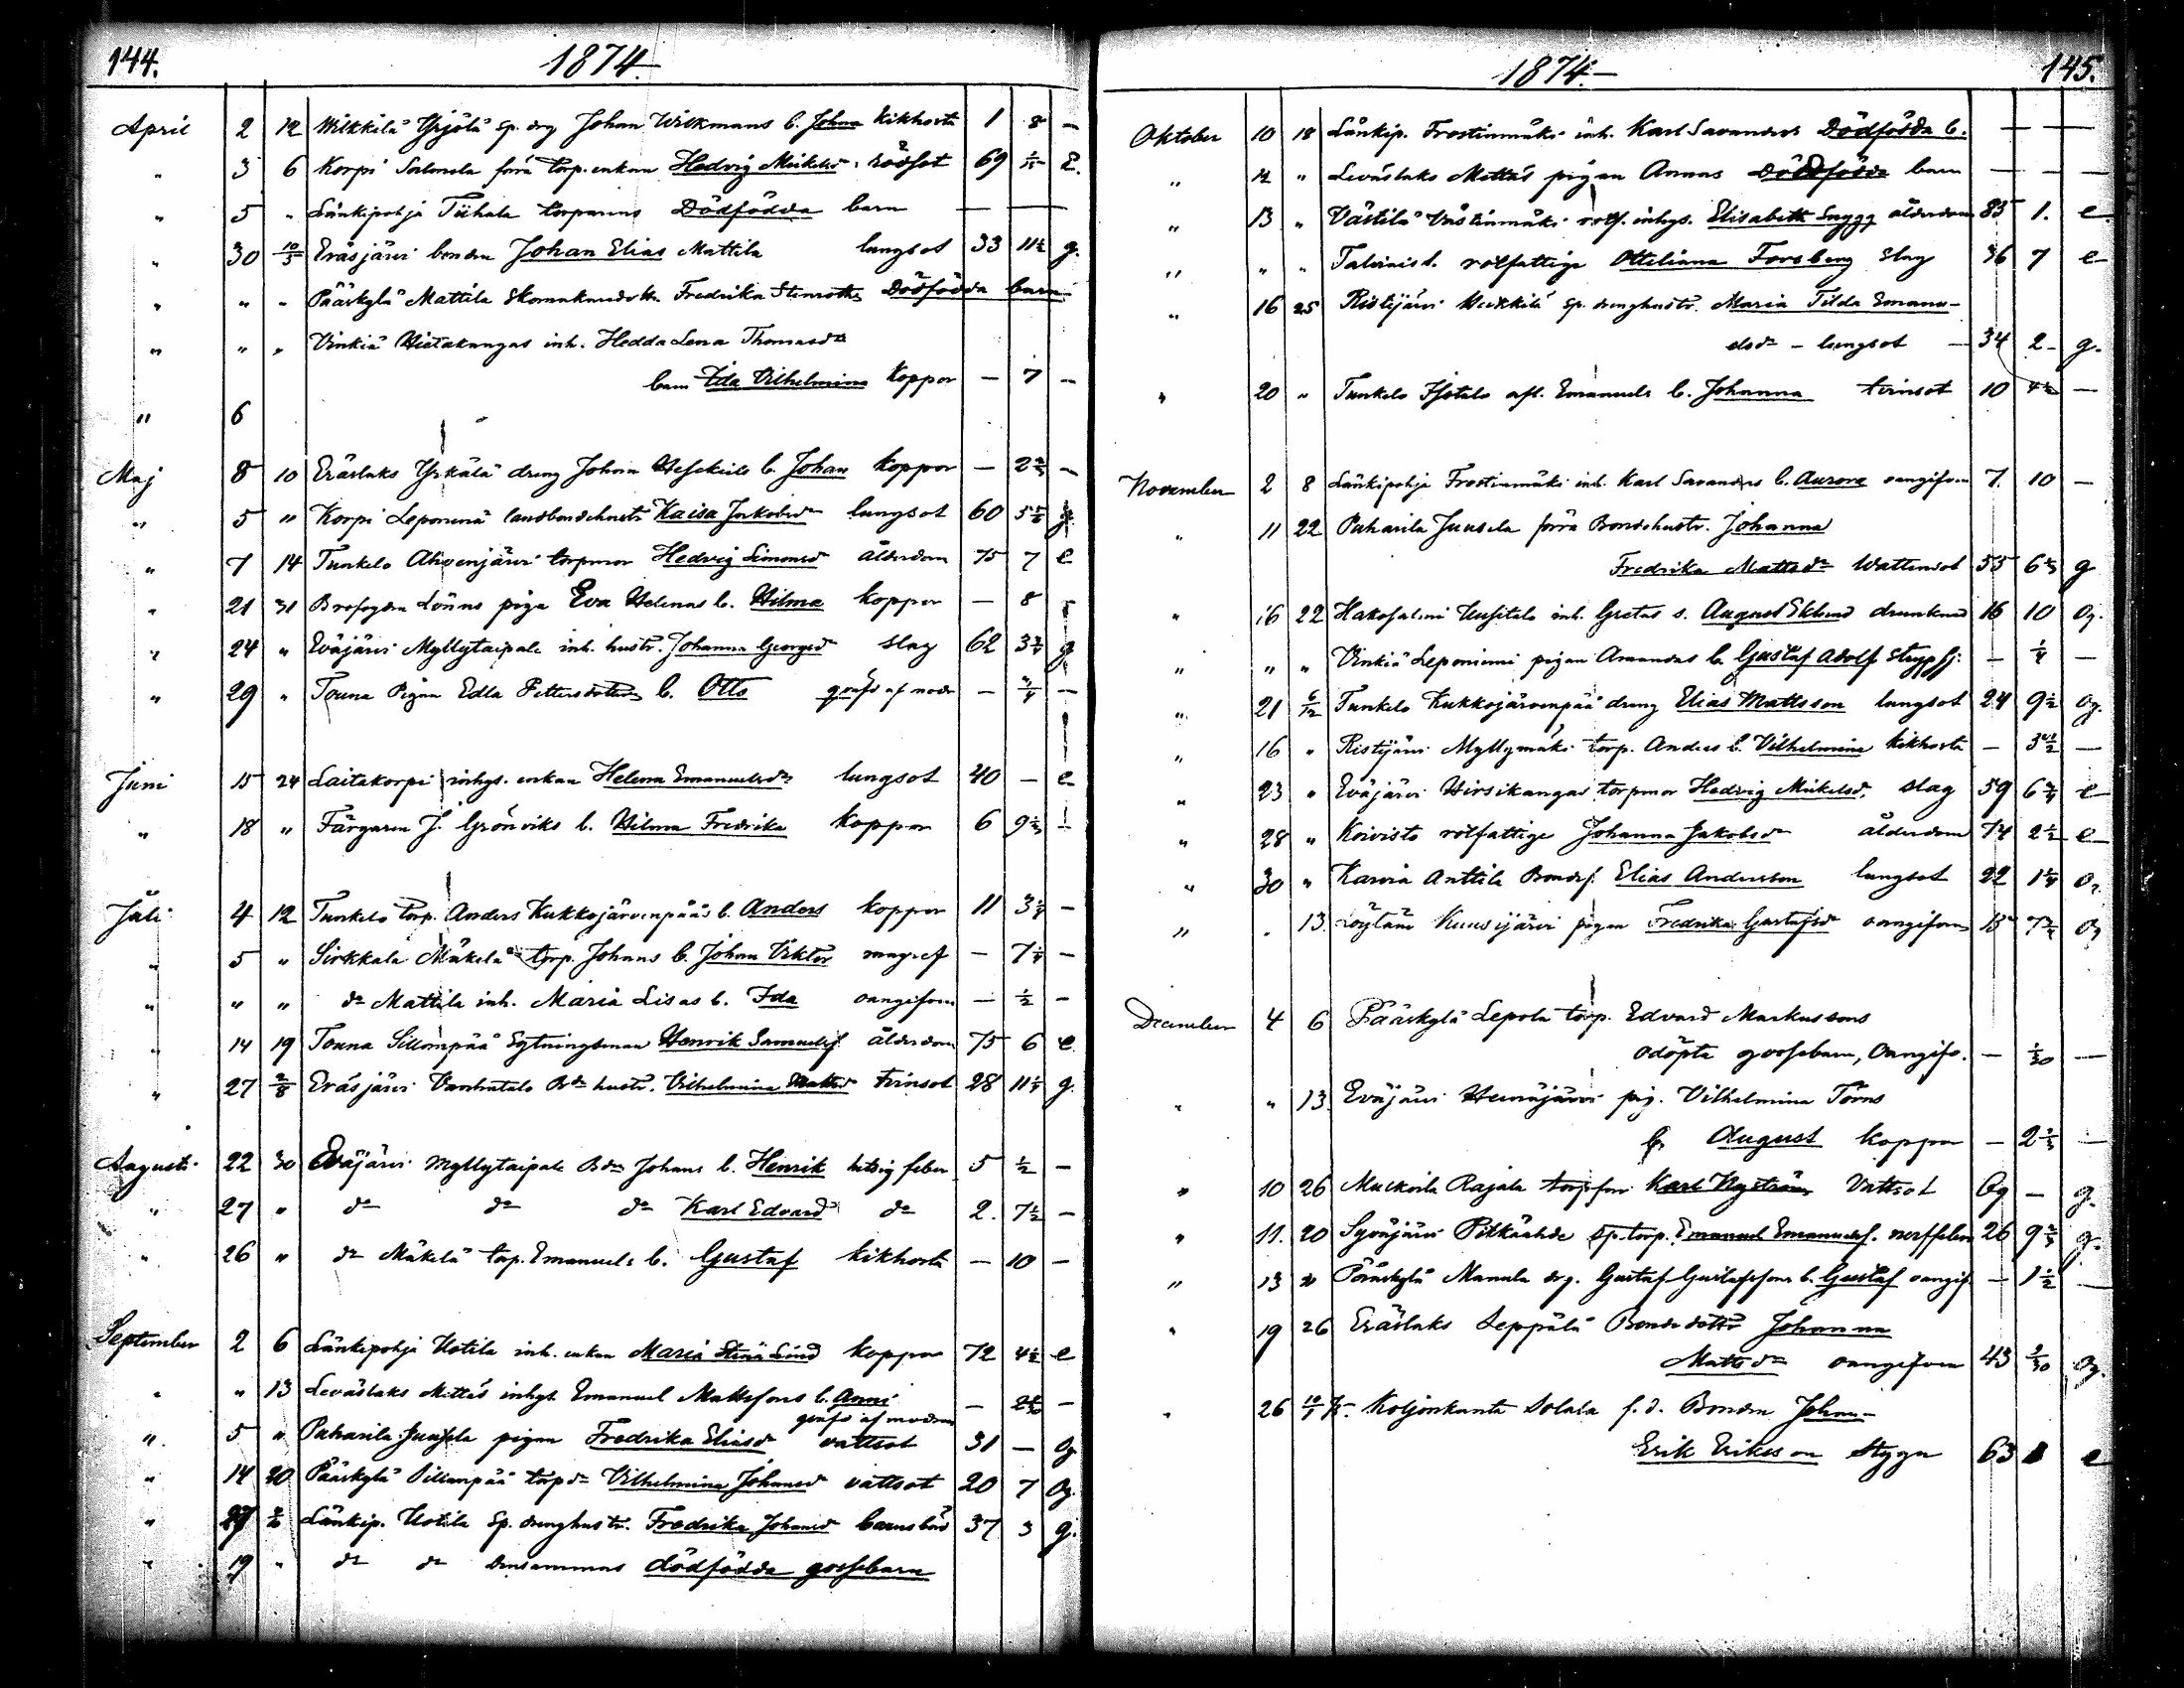 144.
1874.
April 2 12 Wilkkilä Yrjölä sp. drg Johan Wikmans b. Johan Kikhosta 1 8 —
" 3 6 Korpi Salmela förra torp. enkan Hedvig Mickelsd. rödsot 69 E.
" 5 " Länkipohja Tiihala torparens Dödfödda barn — —
" 30 10/5 Eräsjärvi bonden Johan Elias Mattila lungsot 33 11½ g.
" " " Pääskylä Mattila Skomakaredotter Fredrika Stenroths Dödfödda barn
" " " Vinkiä Hietakangas inh. Hedda Lena Thomasdr
barn Ida Vilhelmina Koppor — 7 —
" 6
Maj 8 10 Eräslaks Yrkälä dreng Johan b. Johan Koppor — 2⅔ —
" 5 " Korpi Leponenä landbondehustr Kaisa Jakobsdr lungsot 60 g
" 7 14 Tunkelo Ahvenjärvi torpmor Hedvig Simonsd ålderdom 75 7 e
" 21 31 Brofogden Lönns piga Eva Helenas b. Hilma Koppor — 8 —
" 24 " Eväjärvi Myllytaipale inh. hustr. Johanna Georgsd slag 62 g
" 29 " Touna Pigan Edla Pettersdotters b. Otto qväfd af modr — —
Juni 15 24 Laitakorpi inhys. enkan Helena Emanuelsdr lungsot 40 — e
" 18 " Färgaren J. Grönviks b. Hilma Fredrika Koppor 6 —
Juli 4 12 Tunkelo torp. Anders Kukkojärvenpääs b. Anders koppor 11 —
" 5 " Sirkkala Mäkelä torp. Johans b. Johan Viktor magref — —
" " " dr Mattila inh. Maria Lisas b. Ida oangifven — ½ —
" 14 19 Touna Sillampää Sytningsman Henrik Samuelsf ålderdom 75 6 e
" 27 2/8 Eräsjärvi Vanhatalo Bdr hustr. Vilhelmina Mattsd tvinsot 28 g.
Augusti 22 30 Eväjärvi Myllytaipale Bdr Johans b. Henrik hetsig feber 5 ½ —
" 27 " dr dr dr Karl Edvard dr 2. 7½ —
" 26 " dr Mäkelä torp. Emanuels b. Gustaf kikhosta — 10 —
September 2 6 Länkipohja Uotila inh. enkan Maria Stina Lind koppor 72 4½ e
" " 13 Leväslaks Mattas inhys. Emanuel Mattssons b. Anni
qväfd af modren — —
" 5 " Paharila Juusela pigan Fredrika Eliasdr vattsot 31 — Og
" 14 20 Pääskylä Sillanpää torpdr Vilhelmina Johansd vattsot 20 7 Og.
" 27 Länkip. Uotila Sp. drenghustr. Fredrika Johansd barnsbörd 37 3 g.
" 19 " dr dr densammas dödfödda gossebarn
1874.
145.
Oktober 10 18 Länkip. Frostinmäki inh. Karl Savanders Dödfödda b. — —
" 12 " Leväslaks Mattas pigan Annas Dödfödda barn — — —
" 13 " Västilä Västinmäki rotf. inhys. Elisabeth Snygg ålderdom 83 1. e
" " " Talviais l. rotfattige Ottiliana Forsberg Slag 36 7 e
" 16 25 Ristijärvi Heikkilä sp. drenghustr. Maria Tilda Emanu-
elsdr — lungsot — 34 2 g.
" 20 " Tunkelo Isotalo afl. Emanuels b. Johanna tvinsot 10 4½ —
November 2 8 Länkipohja Frostinmäki inh. Karl Savanders b. Aurora oangifven 7 10 —
" 11 22 Paharila Juusela förra Bondehustr. Johanna
Fredrika Mattsdr Wattensot 55 g
" 16 22 Hakosalmi Uusitalo inh. Gretas s. August Eklund drunknad 16 10 Og.
" " " Vinkiä Leponiemi pigan Amandas b. Gustaf Adolf Strypsj: — ¼ —
" 21 6/12 Tunkelo Kukkojärvenpää dreng Elias Mattsson lungsot 24 9½ Og.
" 16 " Ristijärvi Myllymäki torp. Anders b. Vilhelmina kikhosta — —
" 23 " Eväjärvi Hirsikangas torpmor Hedvig Mickelsd. slag 59 e
" 28 " Koivisto rotfattige Johanna Jakobsdr ålderdom 74 2½ e
" 30 " Karvia Anttila Bondes. Elias Andersson lungsot 22 1¼ Og
" " 13. Löytäne Kuusijärvi pigan Fredrika Gustafsdr oangifven Og
December 4 6 Pääskylä Lepola torp. Edvard Markussons
odöpta gossebarn, Oangifv. — 1/30 —
" " 13. Eväjärvi Heinäjärvi pig. Vilhelmina Törns
b. August koppor — —
" 10 26 Muckoila Rajala torpfar Karl Nyström Vattsot 69 — g.
" 11. 20 Syväjärvi Pitkäahde sp. torp. Emanuel Emanuelsf. nerffeber 26 g.
" 13 20 Pääskylä Mannla drg. Gustaf Gustafssons b. Gustaf oangif — 1½ —
" 19 26 Eräslaks Seppälä Bondedotter Johanna
Mattsdr oangifven 43 Og.
" 26 Koljonkanta Solala f. d. Bonden Johan
Erik Eriksson Stygn 63 e